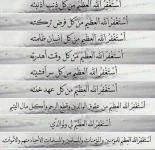 أستغفر الله العظيم من كل ذنب أذنبته
أستغفر الله العظيم من كل فرض تركته
أستغفر الله العظيم من كل إنسان ظلمته
أستغفر الله العظيم من كل وقت أهدرته
أستغفر الله العظيم من كل سر أفشيته
أستغفر الله العظيم من كل عهد خنته
أستغفر الله العظيم من حقوق الوالدين وقطع الرحم وأكل مال اليتيم
أستغفر الله العظيم لي ولوالدي
أستغفر الله العظيم للمؤمنين والمؤمنات والمسلمين والمسلمات الأحياء منهم والأموات